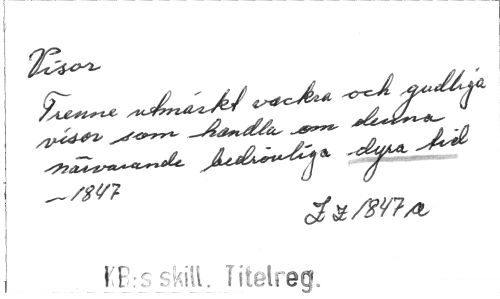 Visor
Trenne utmärkt vackra och gudliga
visor som handla om denna
närvarande bedrövliga dyra tid
—1847
1847 a
KB:s skill. Titelreg.